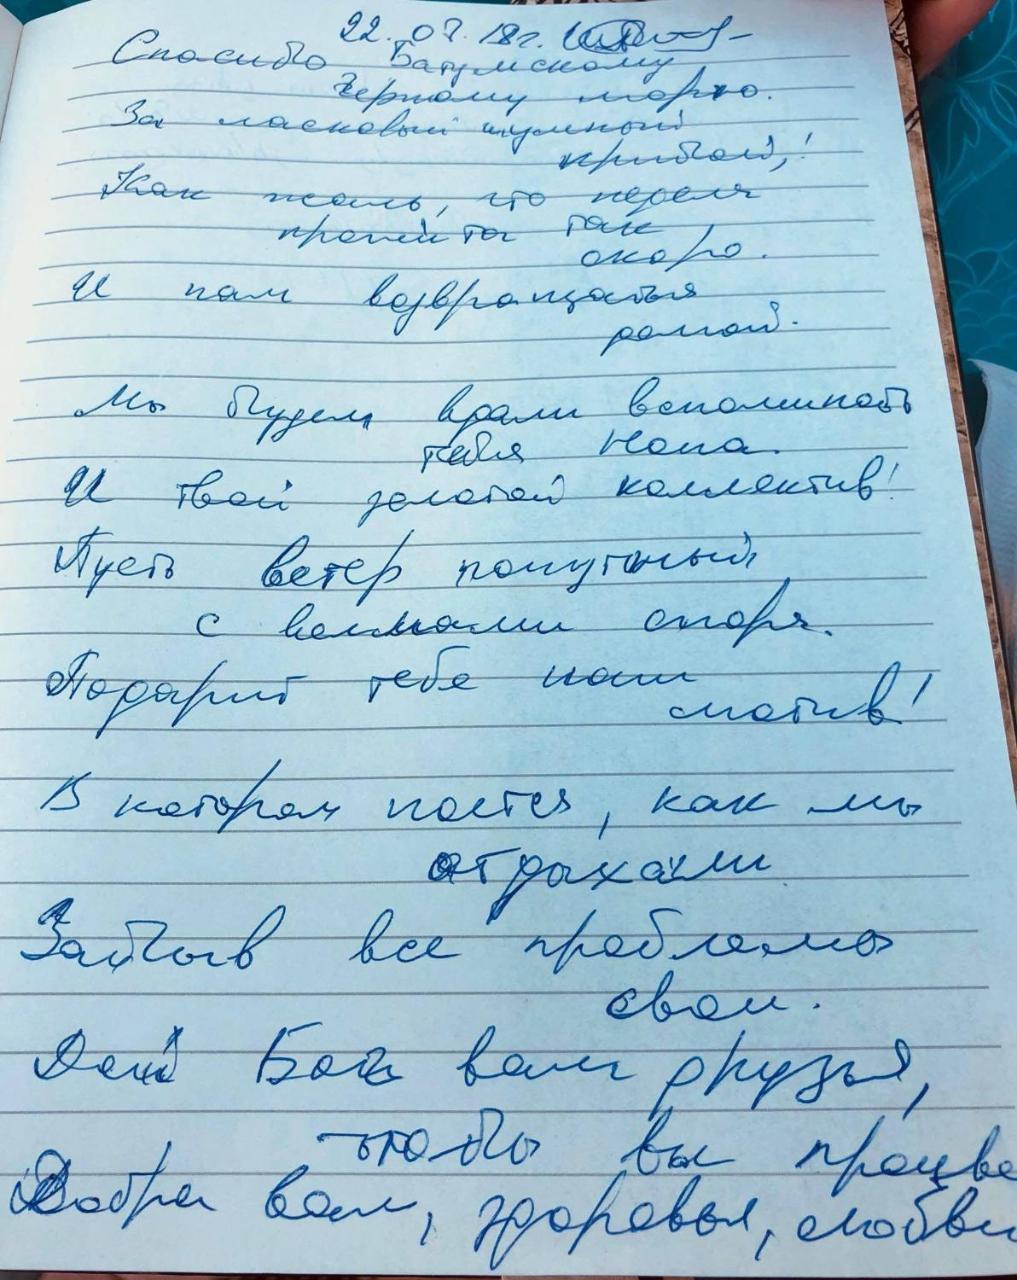 22.07.18г.
Спасибо Батумскому
Черному морю.
За ласковый шумный
прибой,!
Как жаль, что неделя
пройдёт так
скоро.
И нам возвращаться
домой.
Мы будем вдали вспоминать
тебя Нона.
И твой золотой коллектив!
Пусть ветер попутный
с волнами споря.
Подарит тебе наш
мотив!
В котором поется, как мы
отдыхали
Забыв все проблемы
свои.
Дай Бог вам друзья,
чтобы вы процве
Добра вам, здоровья, любви